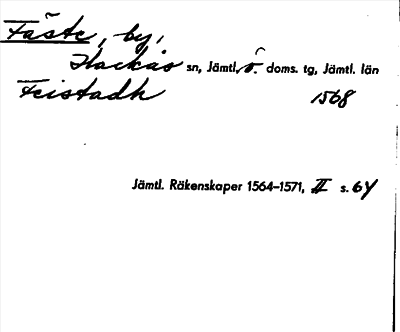 Fäste, by,
Hackås sn, Jämtl. ö. doms. tg, Jämtl. län
Feistadh 1568
Jämtl. Räkenskaper 1564–1571, II s. 64